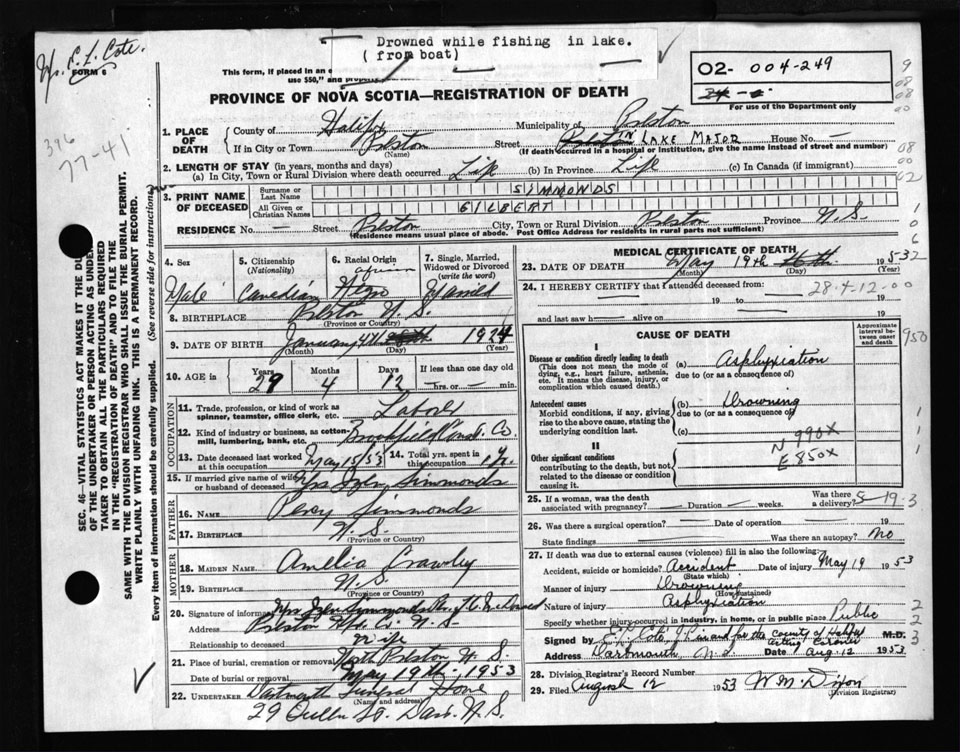 Drowned while fishing in lake.
(from boat)
FORM 6
396
77-41
This form, if placed in an e
use $50," and
02- 004-249
For use of the Department only
PROVINCE OF NOVA SCOTIA—REGISTRATION OF DEATH
1. PLACE OF DEATH
County of Halifax
Municipality of Preston
If in City or Town Preston
(Name)
Street IN LAKE MAJOR House No. —
(If death occurred in a hospital or institution, give the name instead of street and number)
2. LENGTH OF STAY (in years, months and days)
(a) In City, Town or Rural Division where death occurred Life (b) In Province Life (c) In Canada (if immigrant)
3. PRINT NAME OF DECEASED
Surname or Last Name SIMMONDS
All Given or Christian Names GILBERT
RESIDENCE No. — Street Preston City, Town or Rural Division Preston Province N.S.
(Residence means usual place of abode. Post Office Address for residents in rural parts not sufficient)
4. Sex
Male
5. Citizenship
(Nationality)
Canadian
6. Racial Origin
African
Negro
7. Single, Married, Widowed or Divorced
(write the word)
Married
8. BIRTHPLACE Preston N.S.
(Province or Country)
9. DATE OF BIRTH January 4th 1924
(Month) (Day) (Year)
10. AGE in
Years Months Days If less than one day old
29 4 12 —hrs. or —min.
OCCUPATION
11. Trade, profession, or kind of work as spinner, teamster, office clerk, etc. Laborer
12. Kind of industry or business, as cotton-mill, lumbering, bank, etc. Brookfield Const. Co
13. Date deceased last worked at this occupation May 15/53
14. Total yrs. spent in this occupation 1 Yr.
15. If married give name of wife or husband of deceased Mrs Simmonds
FATHER
16. Name Percy Simmonds
17. BIRTHPLACE N.S.
(Province or Country)
MOTHER
18. MAIDEN NAME Amelia Crawley
19. BIRTHPLACE N.S.
(Province or Country)
20. Signature of informant Mrs Simmonds
Address Preston Hfx. Co. N.S.
Relationship to deceased Wife
21. Place of burial, cremation or removal North Preston N.S.
Date of burial or removal May 19th, 1953
22. UNDERTAKER Dartmouth Funeral Home
(Name and address)
29 Queen St. Dart. N.S.
MEDICAL CERTIFICATE OF DEATH
23. DATE OF DEATH May 19th 1953
(Month) (Day) (Year)
24. I HEREBY CERTIFY that I attended deceased from:
28-4-12-00
19 to 19
and last saw h alive on 19
CAUSE OF DEATH
Approximate interval between onset and death
I
Disease or condition directly leading to death
(This does not mean the mode of dying, e.g., heart failure, asthenia, etc. It means the disease, injury, or complication which caused death.)
(a) Asphyxiation
due to (or as a consequence of)
Antecedent causes
Morbid conditions, if any, giving rise to the above cause, stating the underlying condition last.
(b) Drowning
due to (or as a consequence of)
(c)
N990X
E850X
II
Other significant conditions
contributing to the death, but not related to the disease or condition causing it.
25. If a woman, was the death associated with pregnancy? — Duration — weeks. Was there a delivery?
26. Was there a surgical operation? — Date of operation — 19
State findings Was there an autopsy? No
27. If death was due to external causes (violence) fill in also the following:
Accident, suicide or homicide? Accident Date of injury May 19 1953
(State which)
Manner of injury Drowning
(How sustained)
Nature of injury Asphyxiation
Specify whether injury occurred in industry, in home, or in public place Public
Signed by in and for the County of Halifax M.D.
Acting Coroner
Address Dartmouth, N.S. Date Aug. 12 1953
28. Division Registrar's Record Number
29. Filed August 12 1953 W.M. Dixon
(Division Registrar)
SEC. 46—VITAL STATISTICS ACT MAKES IT THE DU
OF THE UNDERTAKER OR PERSON ACTING AS UNDER
TAKER TO OBTAIN ALL THE PARTICULARS REQUIRED
IN THE "REGISTRATION OF DEATH" AND TO FILE THE
SAME WITH THE DIVISION REGISTRAR WHO SHALL ISSUE THE BURIAL PERMIT.
WRITE PLAINLY WITH UNFADING INK. THIS IS A PERMANENT RECORD.
Every item of information should be carefully supplied. (See reverse side for instructions)